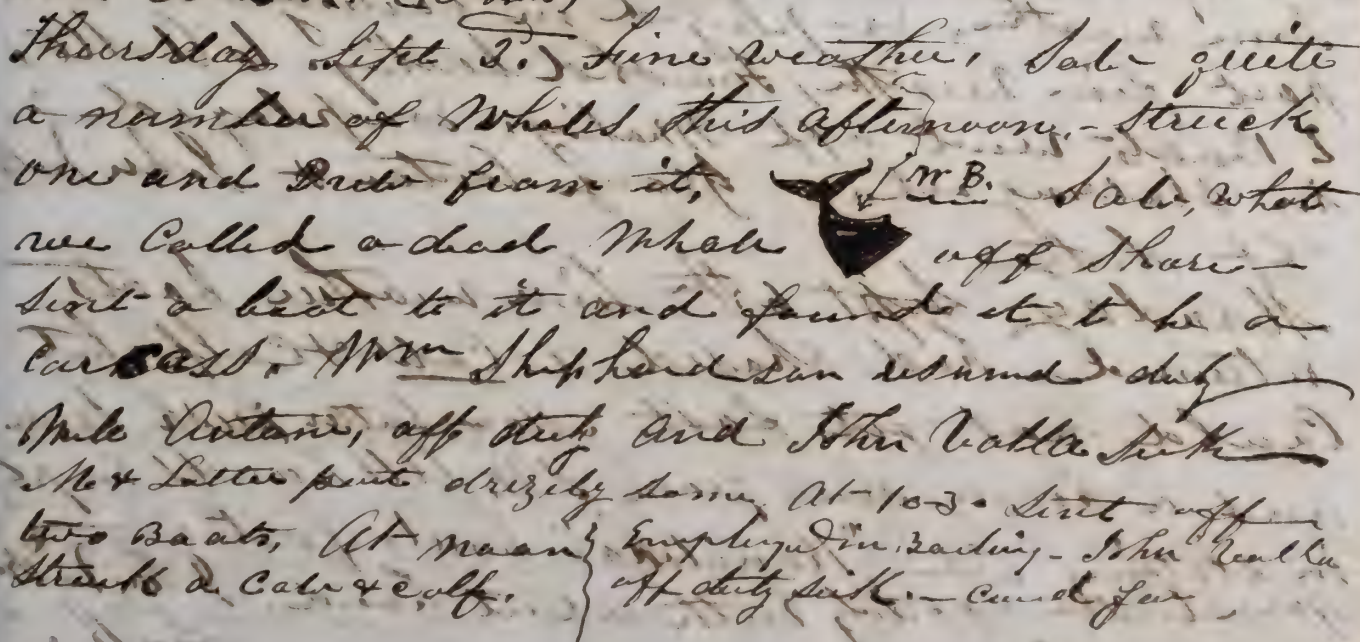 Thursday Sept 2. Fine weather, Saw quite
a number of Whales this afternoon, - Struck
one and Drew from it, W B. Saw, what
we Called a dead Whale off Shore -
Sent a boat to it and found it to be a
Carcass. Wm Shepherdson resumed duty
Antone, off duty and John Sick
M & Latter part drizely some At 10-30 Sent off
two Boats, At noon
Struck a Cow & calf.
Employed in - John
off duty sick. - for